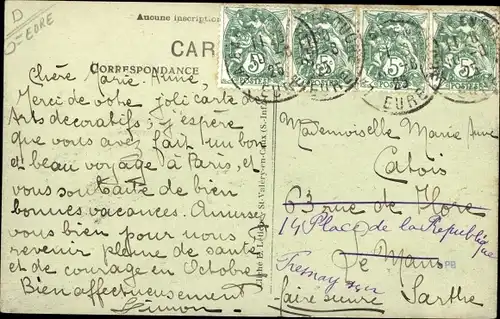 D
D=EURE
Aucune inscription
CAR
CORRESPONDANCE
5c
5c
5c
5c
POSTES
POSTES
POSTES
POSTES
25
25
EURE
EURE
Chère Marie-Anne,
Merci de votre joli carte des
Arts decoratifs; j'espère
que vous avez fait un bon
et beau voyage à Paris, et
vous souhaite de bien
bonnes vacances. Amusez
vous bien pour nous
revenir pleine de santé
et de courage en Octobre
Bien affectueusement
Simon
St-Valery-en-Caux (S.-Inf.)
Mademoiselle Marie Anne
63 rue de
14 Place de la République
Le Mans
PB
Fresnay
faire suivre Sarthe